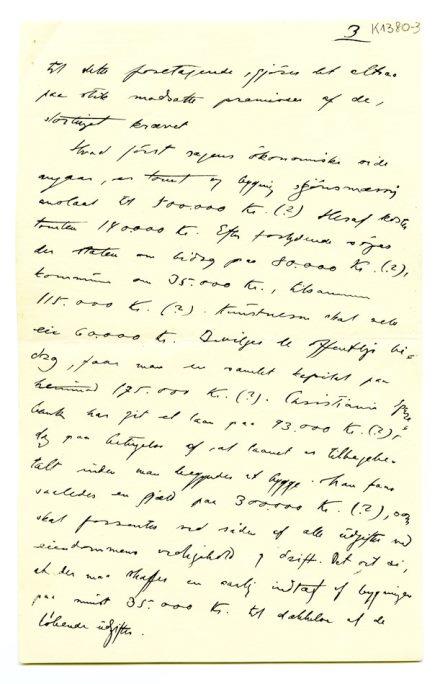 3 K1380-3
til dette foretagende, gjøres det altsaa
paa stik modsatte premisser af de,
stortinget krævet
Hvad først sagens økonomiske side
angaar, er tomt og bygning skjønsmæssig
anslaat til 500.000 Kr. (?) Heraf koster
tomten 140.000 Kr. Efter forlydende søges
der staten om bidrag paa 80.000 Kr. (?),
kommunen om 35.000 Kr., tilsammen
115.000 Kr. (?). Kunstnerne skal selv
eie 60.000 Kr. Bevilges de offentlige bi=
drag, faar man en samlet kapital paa
175.000 Kr. (?). Christiania
bank har git et laan paa 93.000 Kr. (?),
dog paa betingelse af, at laanet er tilbagebe=
talt inden man begynder at bygge. Man faar
saaledes en gjæld paa 300.000 Kr. (?), som
skal forrentes ved siden af alle udgifter ved
eiendommens vedligehold og drift. Det vil si,
at der maa skaffes en aarlig indtægt af bygningen
paa mindst 35.000 Kr. til dækkelse af de
løbende udgifter.